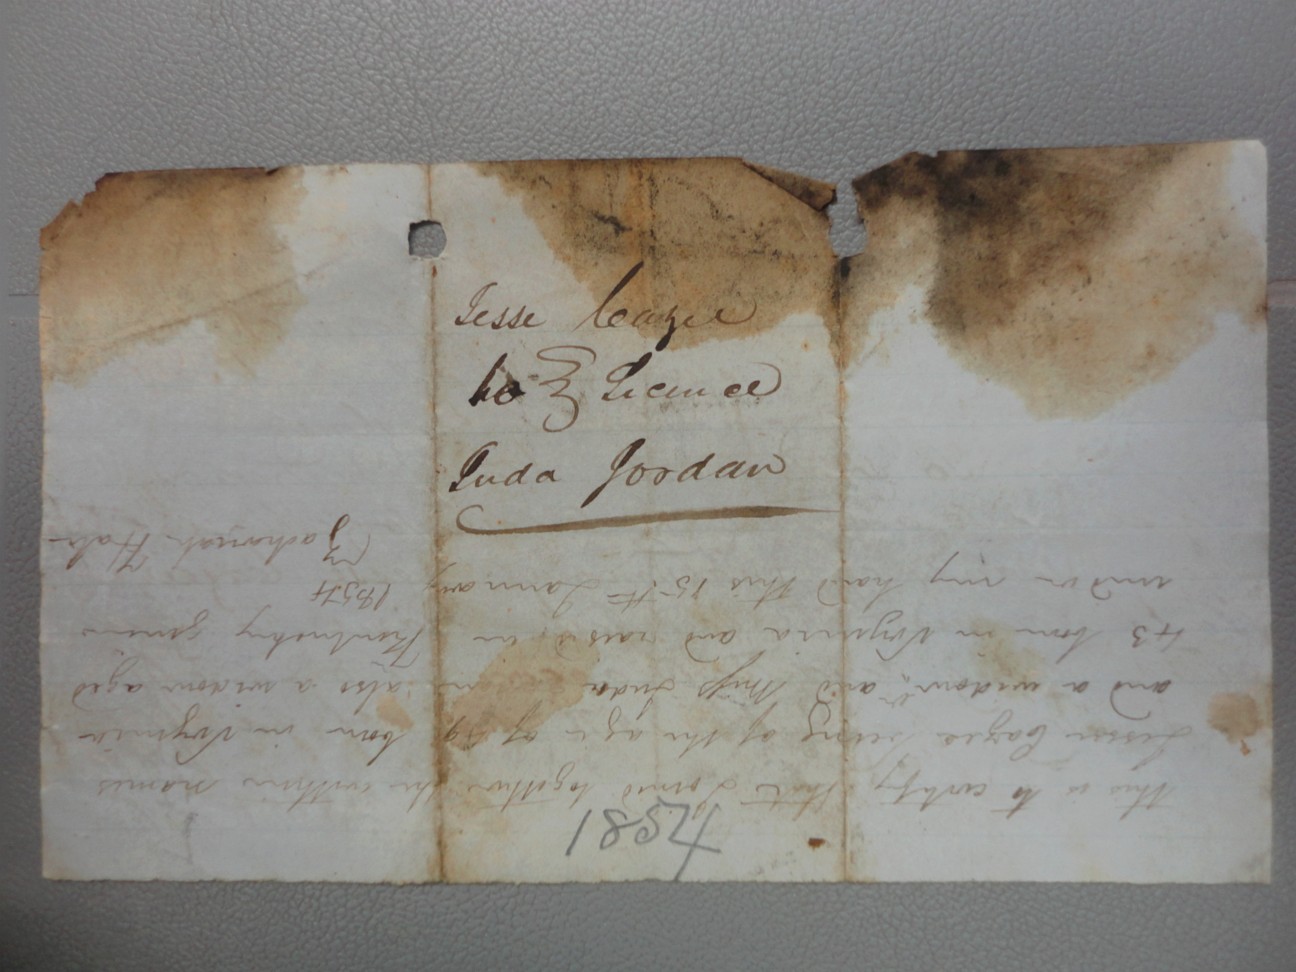 Jesse Cazee
to } Licence
Juda Jordan
This is to certify that I joined together the within names
Jesse Cazee being of the age of 49 born in Virginia
and a widower and Miss Juda also a widow aged
43 born in Virginia and raised in
under my hand this 15th January 1854
Zachariah
1854